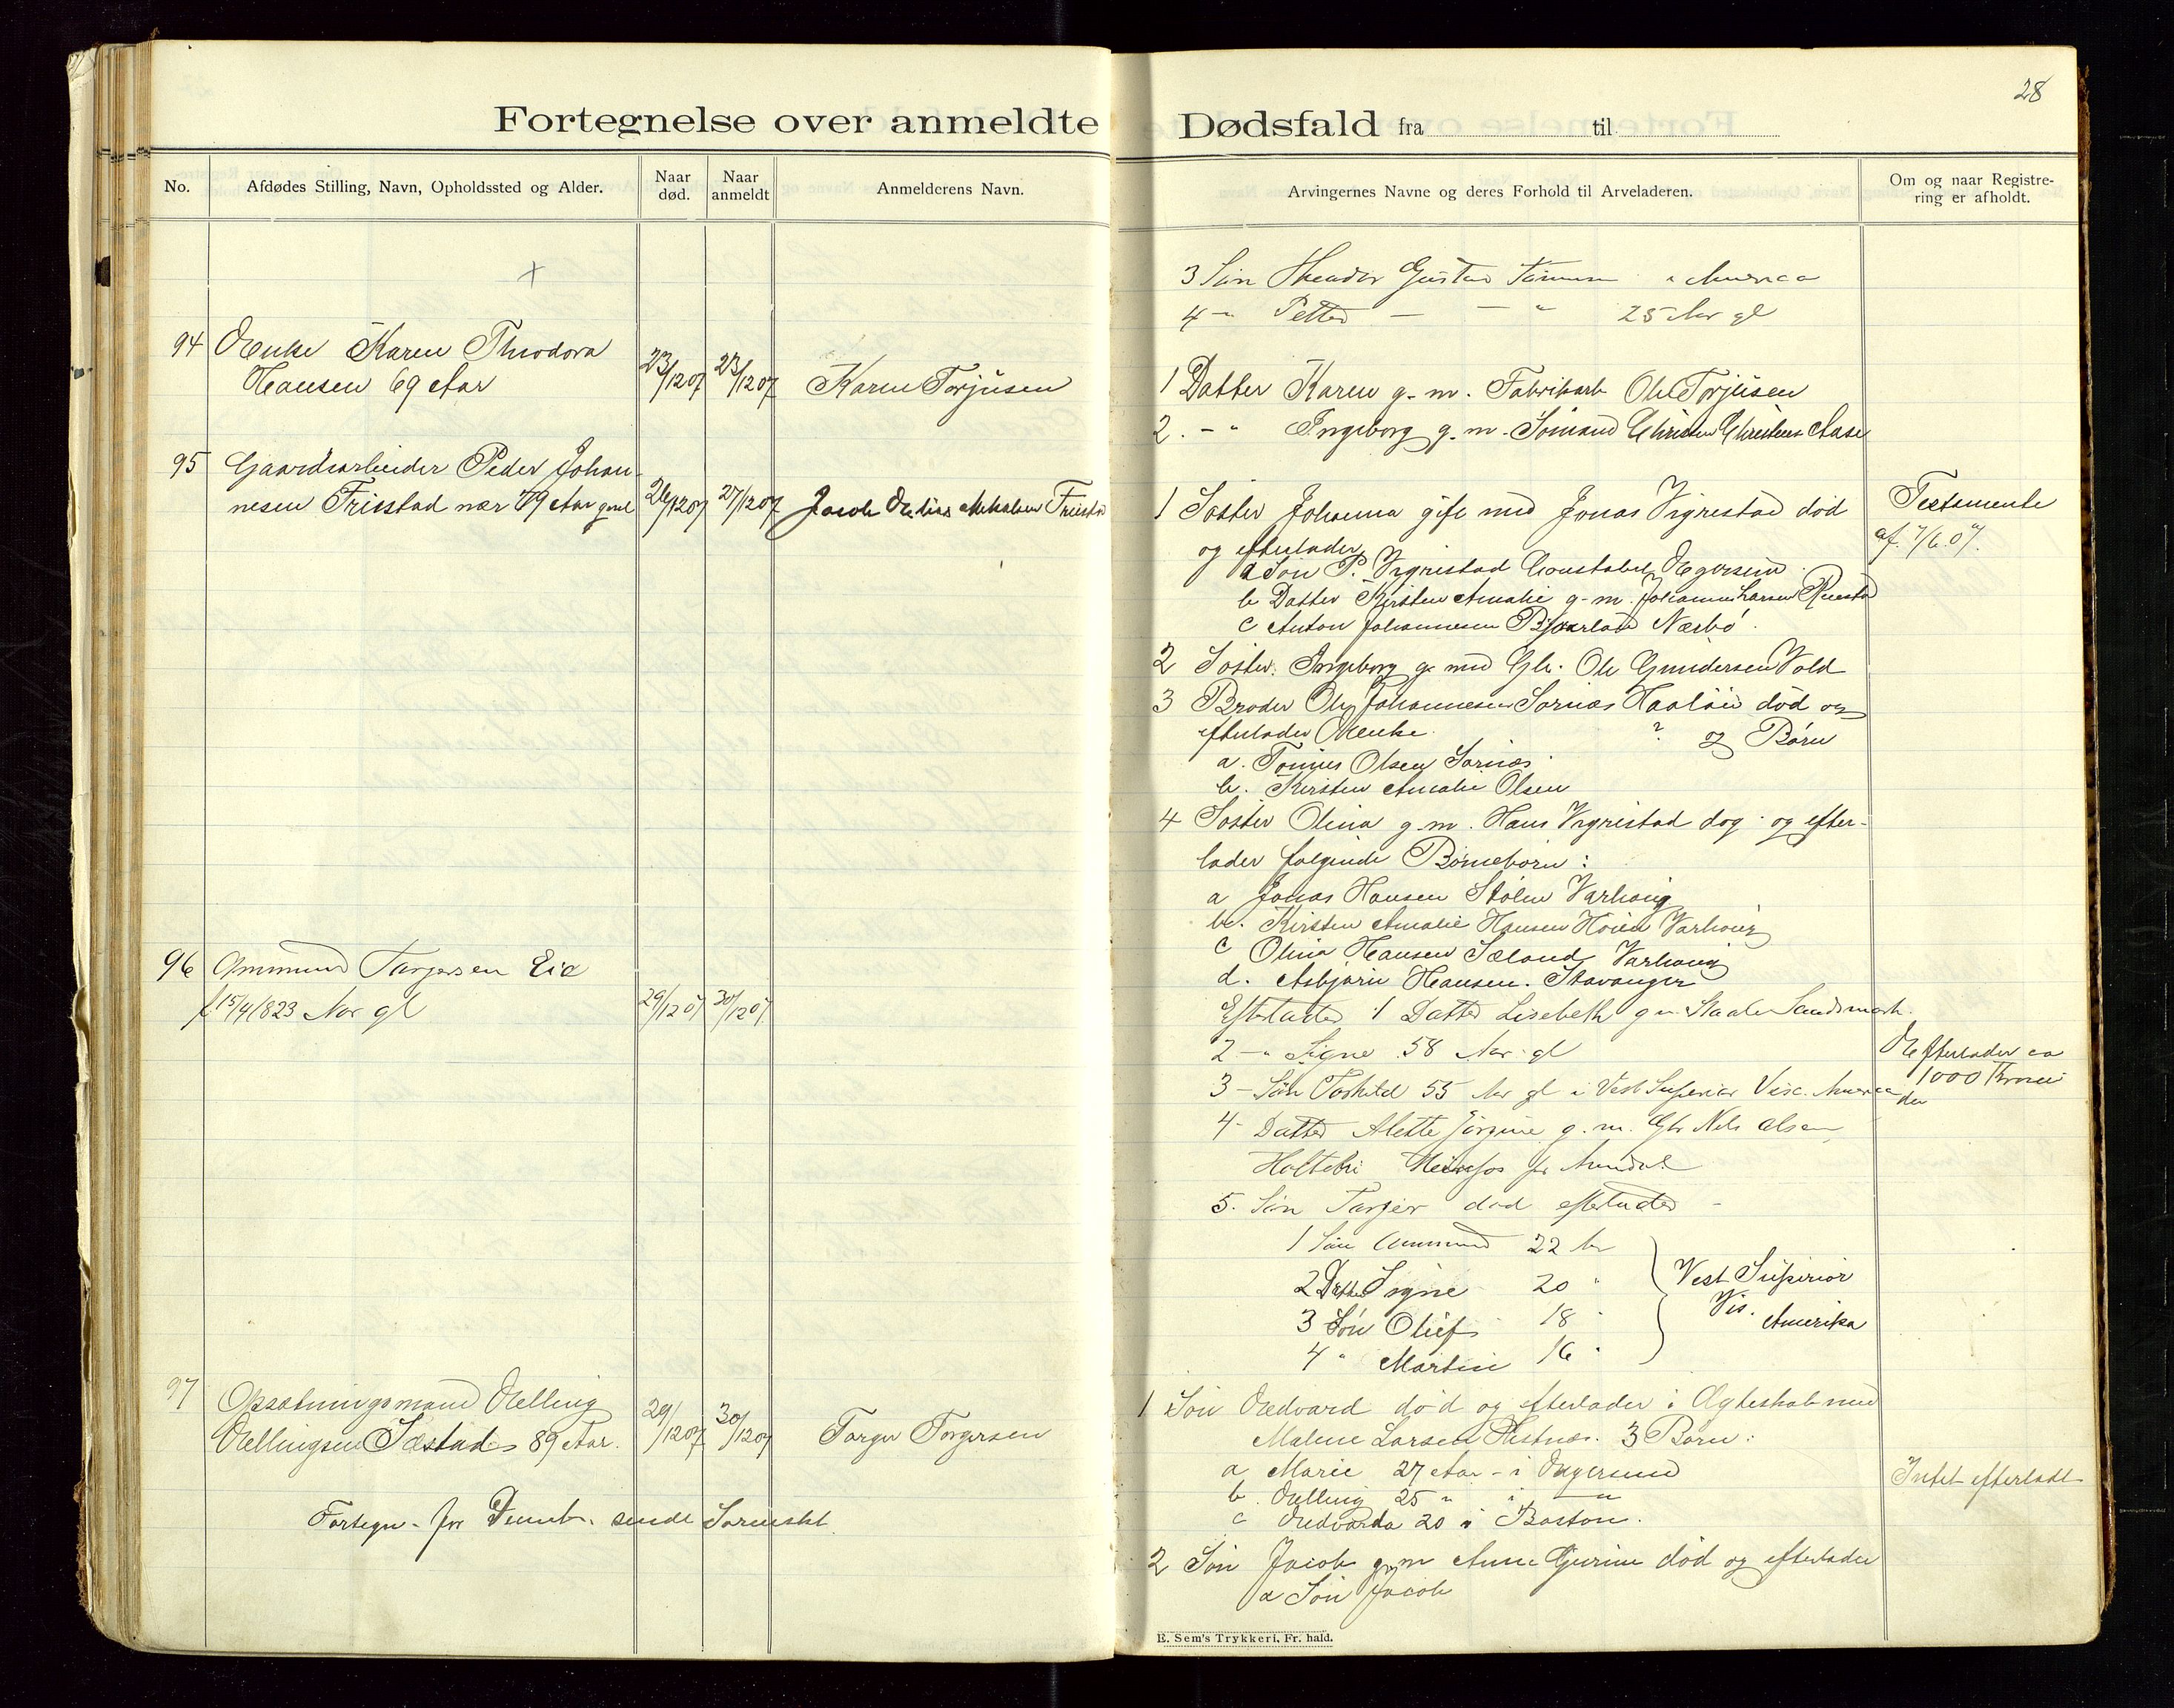 28
Fortegnelse over anmeldte Dødsfald fra til
No.
Afdødes Stilling, Navn, Opholdssted og Alder.
Naar død.
Naar anmeldt
Anmelderens Navn.
Arvingernes Navne og deres Forhold til Arveladeren.
Om og naar Registre-
ring er afholdt.
3 Søn Theodor Gustav i America
4 -" Petter - - " 25 Aar gl
94 Enke Karen Theodora
Hansen 69 Aar
23/12 07 23/12 07 Karen Torjusen
1 Datter Karen g. m. Fabrikarb Ole Torjusen
2. - " Ingeborg g. m. Sömand Christen Aase
95 Gaardsarbeider Peder Johan-
nesen Friestad nær 79 Aar gml
26/12 07 27/12 07 Jacob Friestad
1 Søster Johanna gift med Jonas Vigrestad död
og efterlader
a Sön P. Vigrestad Constabel Egersund
b Datter Kirsten Amalie g. m. Johannes Larsen
c Anton Johannesen Bjorland Nærbö.
Testamente
af. 7/6.07.
2 Søster. Ingeborg g. med Gb. Ole Gundersen Vold
3 Broder Ole Johannesen Sörnæs Haaland död og
efterlader Enke. ? og Börn
a. Tönnes Olsen Sörnæs
b. Kirsten Amalie Olsen
4 Søster Olina g. m. Hans Vigrestad dog - og efter-
lader følgende Börneborn:
a Jonas Hansen Stölen Varhoug
b. Kirsten Amalie Hansen Höien Varhoug
c Olina Hansen Sæland Varhoug
d. Asbjørn Hansen. Stavanger
96 Ommund Targersen Eie
f. 15/4 1823 Aar gl
29/12 07 30/12 07.
Efterlader 1 Datter Lisebeth g. m. Staale Sandsmark.
2 - " Signe 58 Aar gl
3 - Søn Toskild 55 Aar gl i Vest Superior Visc. America
4 - Datter Alette Jörgine g. m. Gbr Nels Olsen
Arendal
5. Søn Targer död efterlader -
1 Søn Ommund 22 Aar
2 Datter Signe 20 "
3 Søn Oluf 18 "
4 " Martin 16 "
Vest Superior
Vis. Amerika
Efterlader ca
1000 Kroner
97 Opsætningsmand Elling
Ellingsen Sæstad 89 Aar.
29/12 07 30/12 07 Targer Torgersen
1 Søn Edvard död og efterlader i Ægteskab med
Malene Larsen Hestnes. 3 Börn:
a Marie 27 Aar - i Egersund
b. Elling 25 " i "
c Edvarda 20 i Boston.
Intet efterladt
2 Søn Jacob g. m Anne Gurine död og efterlader
a Sön Jacob
Fortegn. for Decmb. sendt Sorenskr.
E. Sem's Trykkeri, Fr. hald.